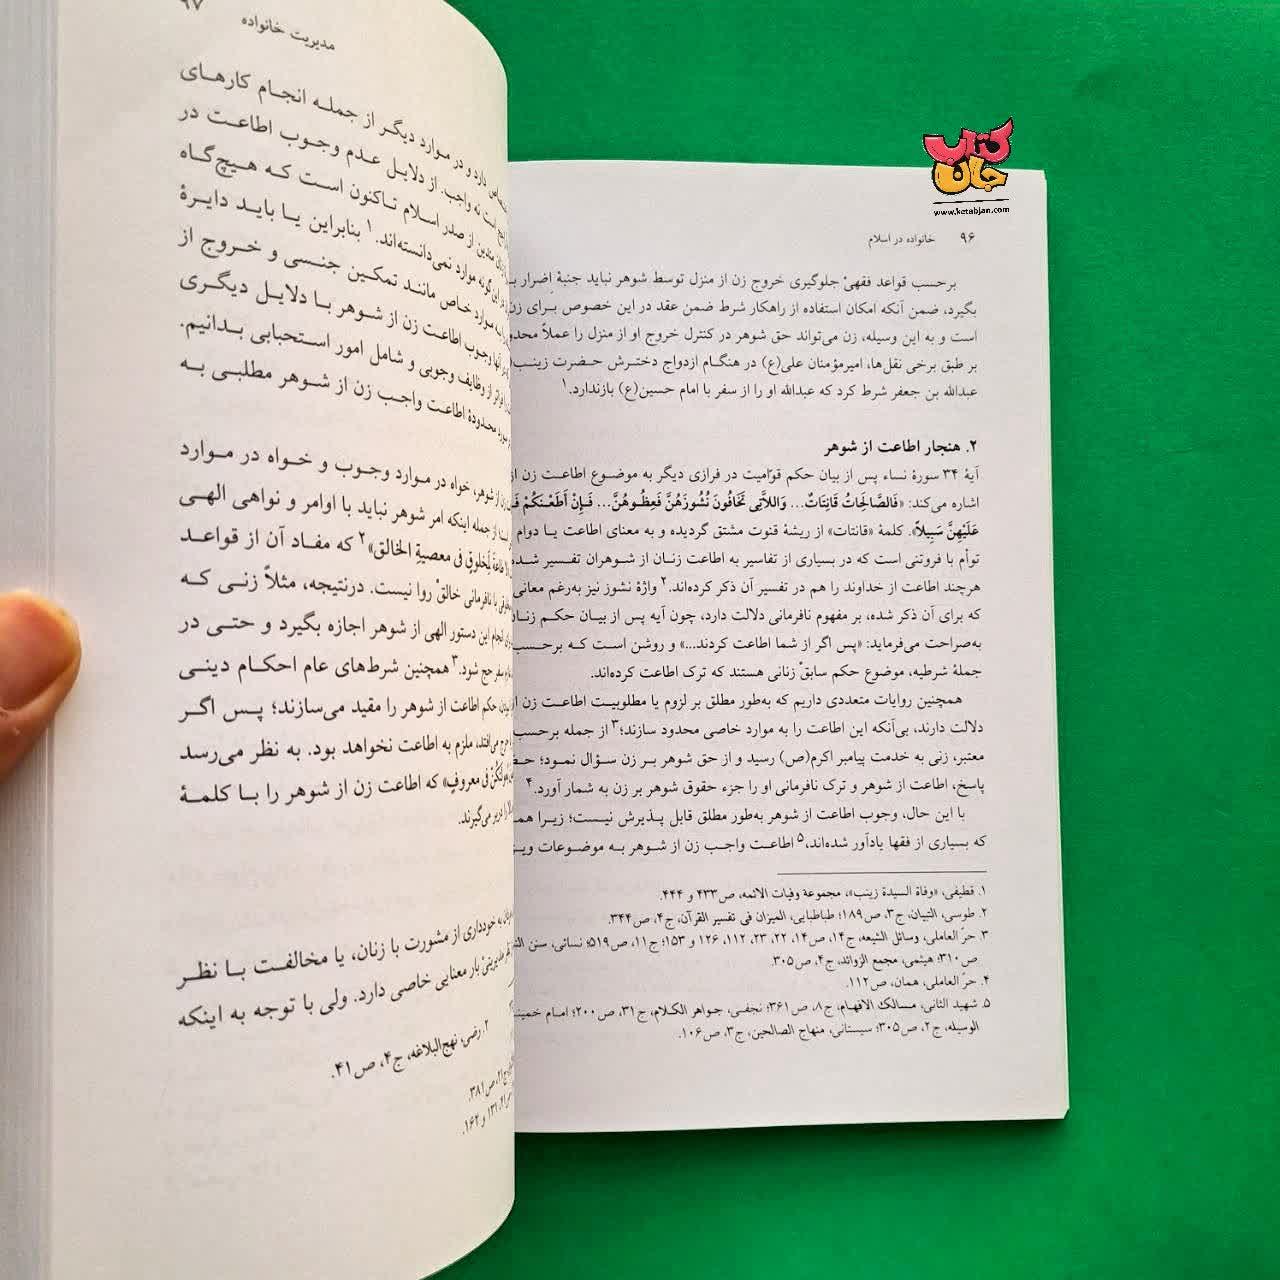 کتاب
جان
www.ketabjan.com
۹۶ خانواده در اسلام
برحسب قواعد فقهیْ جلوگیری خروج زن از منزل توسط شوهر نباید جنبهٔ اِضرار
بگیرد، ضمن آنکه امکان استفاده از راهکار شرط ضمن عقد در این خصوص برای زن
است و به این وسیله، زن می‌تواند حق شوهر در کنترل خروج او از منزل را عملاً
بر طبق برخی نقل‌ها، امیرمؤمنان علی(ع) در هنگام ازدواج دخترش حضرت زینب
عبدالله بن جعفر شرط کرد که عبدالله او را از سفر با امام حسین(ع) بازندارد.۱
۲. هنجار اطاعت از شوهر
آیهٔ ۳۴ سورهٔ نساء پس از بیان حکم قوّامیت در فرازی دیگر به موضوع اطاعت زن از
اشاره می‌کند: «فَالصَّالِحَاتُ قَانِتَاتٌ... وَاللاَّتِی تَخَافُونَ نُشُوزَهُنَّ فَعِظُوهُنَّ... فَإِنْ أَطَعْنَکُمْ
عَلَیْهِنَّ سَبِیلاً». کلمهٔ «قانتات» از ریشهٔ قنوت مشتق گردیده و به معنای اطاعت یا دوام
توأم با فروتنی است که در بسیاری از تفاسیر به اطاعت زنان از شوهران تفسیر شده
هرچند اطاعت از خداوند را هم در تفسیر آن ذکر کرده‌اند.۲ واژهٔ نشوز نیز به‌رغم معانی
که برای آن ذکر شده، بر مفهوم نافرمانی دلالت دارد، چون آیه پس از بیان حکم
به‌صراحت می‌فرماید: «پس اگر از شما اطاعت کردند...» و روشن است که برحسب
جملهٔ شرطیه، موضوع حکم سابقْ زنانی هستند که ترک اطاعت کرده‌اند.
همچنین روایات متعددی داریم که به‌طور مطلق بر لزوم یا مطلوبیت اطاعت زن از
دلالت دارند، بی‌آنکه این اطاعت را به موارد خاصی محدود سازند؛۳ از جمله برحسب
معتبر، زنی به خدمت پیامبر اکرم(ص) رسید و از حق شوهر بر زن سؤال نمود؛
پاسخ، اطاعت از شوهر و ترک نافرمانی او را جزء حقوق شوهر بر زن به شمار آورد.۴
با این حال، وجوب اطاعت از شوهر به‌طور مطلق قابل پذیرش نیست؛ زیرا
که بسیاری از فقها یادآور شده‌اند،۵ اطاعت واجب زن از شوهر به موضوعات
۱. قطیفی، «وفاة السیدة زینب»، مجموعة وفیات الائمه، ص۴۳۳ و ۴۴۴.
۲. طوسی، التبیان، ج۳، ص۱۸۹؛ طباطبایی، المیزان فی تفسیر القرآن، ج۴، ص۳۴۴.
۳. حرّ العاملی، وسائل الشیعه، ج۱۴، ص۱۴، ۲۲، ۲۳، ۱۱۲، ۱۲۶ و ۱۵۳؛ ج۱۱، ص۵۱۹؛ نسائی، سنن
ص۳۱۰؛ هیثمی، مجمع الزوائد، ج۴، ص۳۰۵.
۴. حرّ العاملی، همان، ص۱۱۲.
۵. شهید الثانی، مسالک الافهام، ج۸، ص۳۶۱؛ نجفی، جواهر الکلام، ج۳۱، ص۲۰۰؛ امام
الوسیله، ج۲، ص۳۰۵؛ سیستانی، منهاج الصالحین، ج۳، ص۱۰۶.
مدیریت خانواده ۹۷
دارد و در موارد دیگر از جمله انجام کارهای
است نه واجب. از دلایل عدم وجوب اطاعت در
متدین از صدر اسلام تاکنون است که هیچ‌گاه
این گونه موارد نمی‌دانسته‌اند.۱ بنابراین یا باید دایرهٔ
موارد خاص مانند تمکین جنسی و خروج از
آنها وجوب اطاعت زن از شوهر با دلایل دیگری
فراتر از وظایف وجوبی و شامل امور استحبابی بدانیم.
محدودهٔ اطاعت واجب زن از شوهر مطلبی به
از شوهر، خواه در موارد وجوب و خواه در موارد
از جمله اینکه امر شوهر نباید با اوامر و نواهی الهی
طاعةَ لِمخلوقٍ فی معصیةِ الخالق»۲ که مفاد آن از قواعد
با نافرمانی خالقْ روا نیست. درنتیجه، مثلاً زنی که
انجام این دستور الهی از شوهر اجازه بگیرد و حتی در
سفر حج شود.۳ همچنین شرط‌های عام احکام دینی
حکم اطاعت از شوهر را مقید می‌سازند؛ پس اگر
حرج می‌افتد، ملزم به اطاعت نخواهد بود. به نظر می‌رسد
فی معروفٍ» که اطاعت زن از شوهر را با کلمهٔ
را دربر می‌گیرند.
به خودداری از مشورت با زنان، یا مخالفت با نظر
بار معنایی خاصی دارد. ولی با توجه به اینکه
۲. رضی، نهج‌البلاغه، ج۴، ص۴۱.
ص۳۸۱.
۱۳۱ و ۱۶۲.